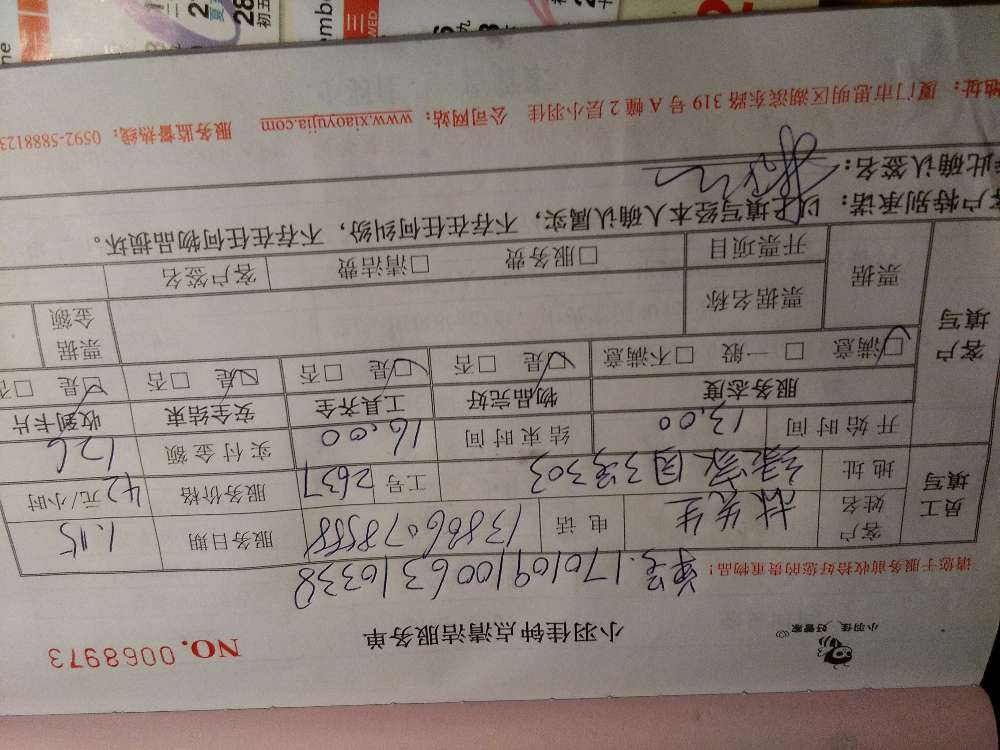 小羽佳 好管家
小羽佳钟点清洁服务单
NO. 0068973
请您于服务前收拾好您的贵重物品！
单号.1701091006310338
员工填写
客户姓名 林先生 电话 13866078588 服务日期 1.15
地址 绿家园3号303 工号 2637 服务价格 42元/小时
开始时间 13.00 结束时间 16.00 实付金额 126
客户填写
服务态度 物品完好 工具齐全 安全结束 收到卡片
☑满意 □一般 □不满意 ☑是 □否 ☑是 □否 ☑是 □否 ☑是 □否
票据 票据名称 票据金额
开票项目 □服务费 □清洁费 客户签名
客户特别承诺：以上填写经本人确认属实，不存在任何纠纷，不存在任何物品损坏。
此确认签名：
地址：厦门市思明区湖滨东路319号A幢2层小羽佳 公司网站：www.xiaoyujia.com 服务监督热线：0592-5888123